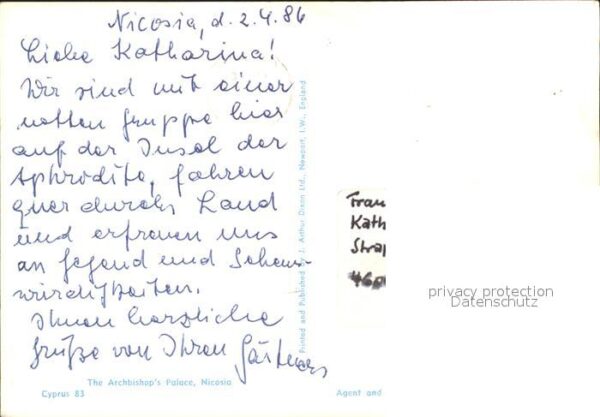 Nicosia, d. 2.4.86
Liebe Katharina!
Wir sind mit einer
netten Gruppe hier
auf der Insel der
Aphrodite, fahren
quer durchs Land
und erfreuen uns
an Gegend und Sehens-
würdigkeiten.
Ihnen herzliche
Grüße von Ihren Gärtners
The Archbishop's Palace, Nicosia
Cyprus 83
Printed and Published by J. Arthur Dixon Ltd., Newport, I.W., England
Frau
Kath
Stra
460
privacy protection
Datenschutz
Agent and